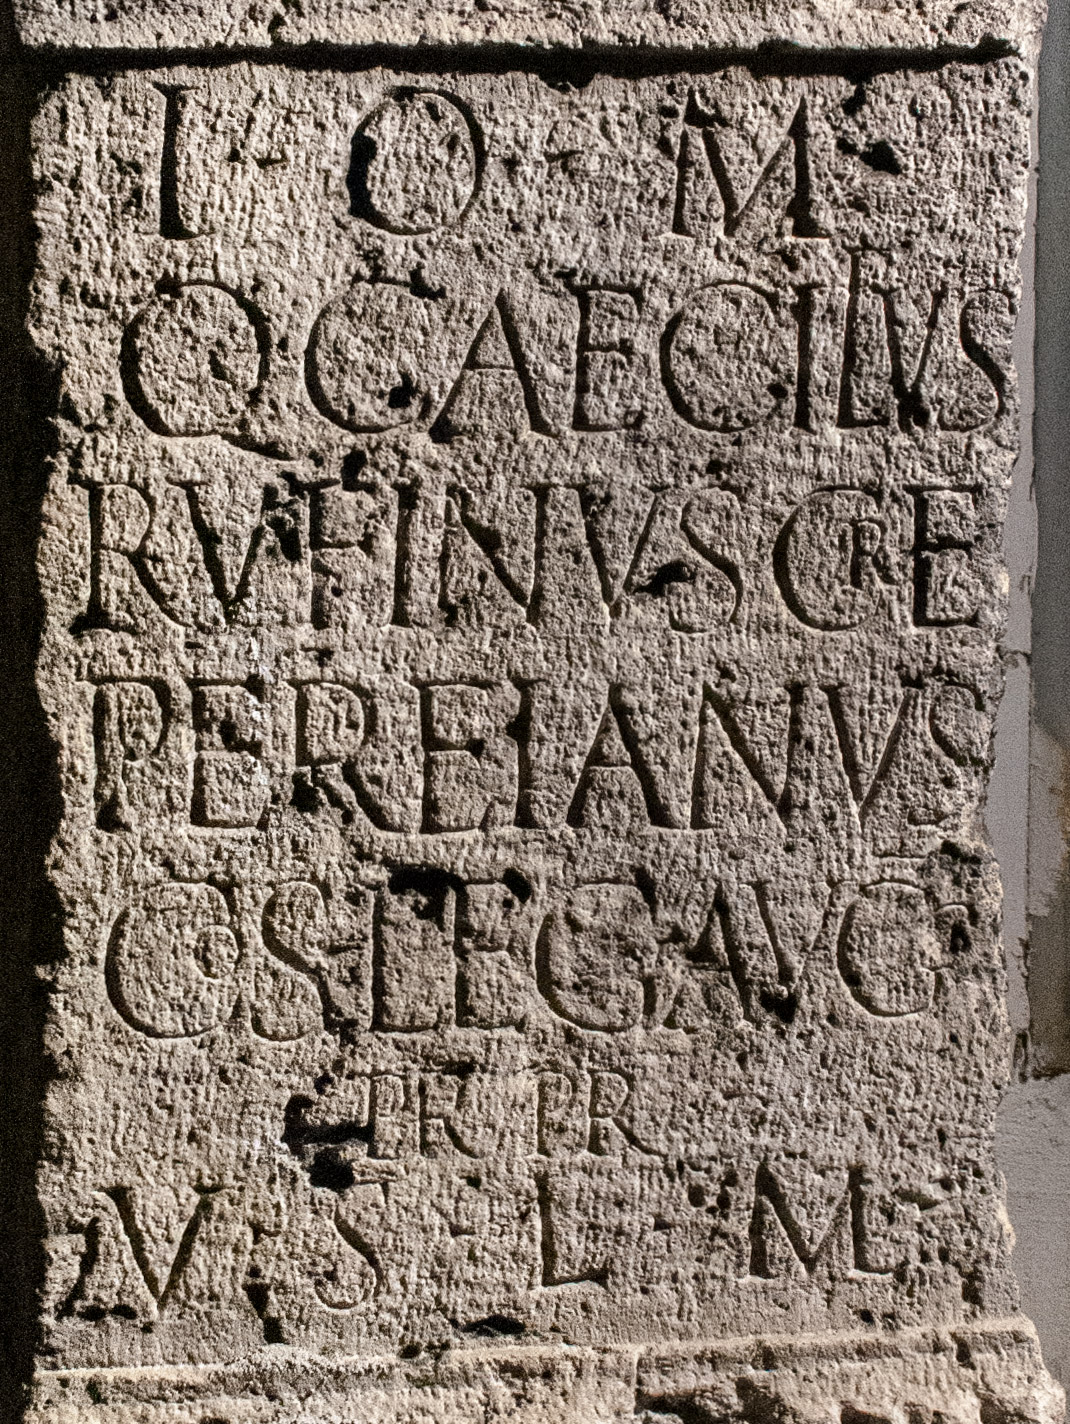 I · O · M
Q CAECILIVS
RVFINVS CRE
PEREIANVS
COS LEG AVG
PR PR
V · S · L · M